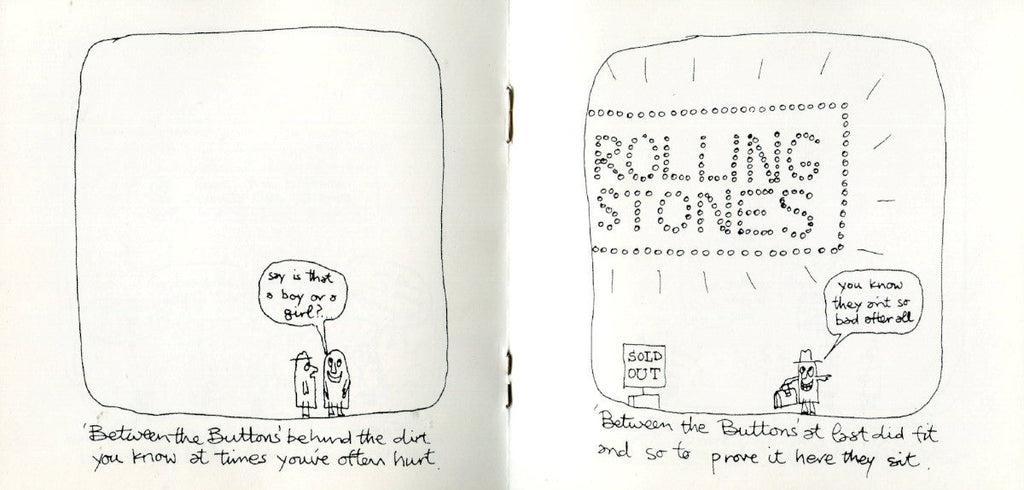 say is that
a boy or a
girl?
'Between the Buttons' behind the dirt
you know at times you've often hurt.
ROLLING
STONES
you know
they ain't so
bad after all
SOLD
OUT
'Between the Buttons' at last did fit
and so to prove it here they sit.